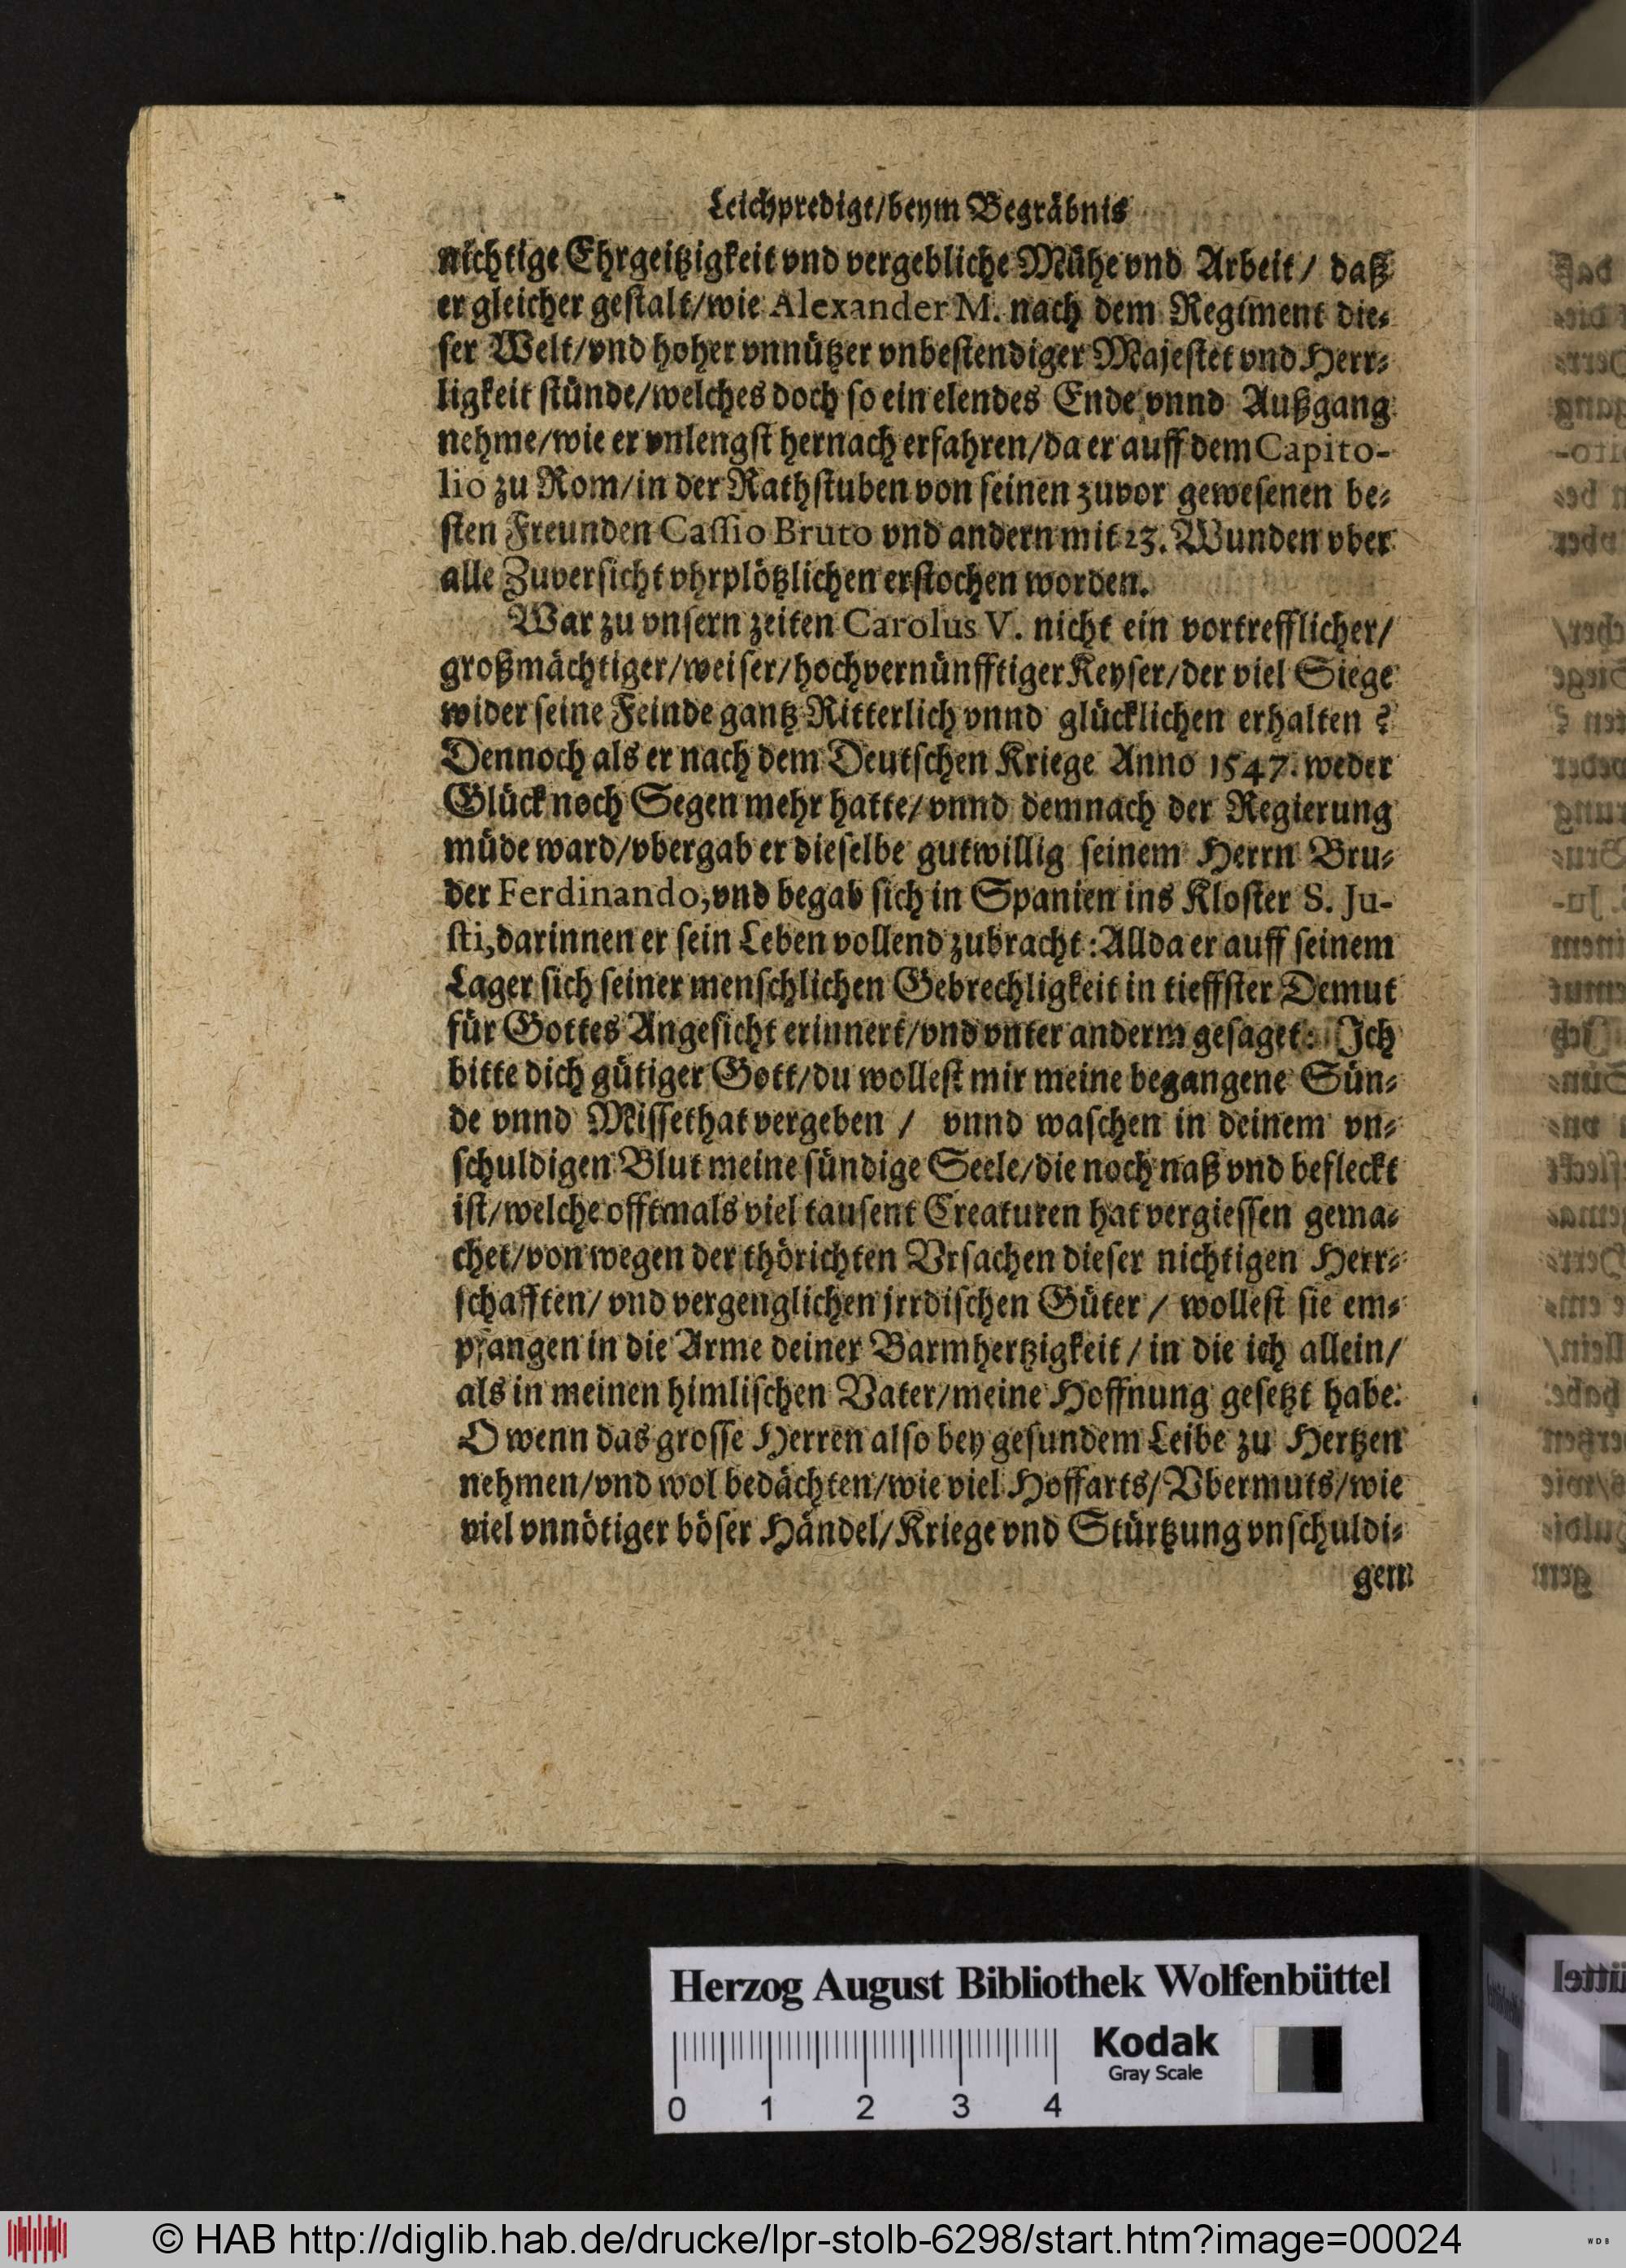 Leichpredigt/beym Begräbnis
nichtige Ehrgeitzigkeit vnd vergebliche Mühe vnd Arbeit/ daß
er gleicher gestalt/wie Alexander M. nach dem Regiment die-
ser Welt/vnd hoher vnnützer vnbestendiger Majestet vnd Herr-
ligkeit stünde/welches doch so ein elendes Ende vnnd Außgang
nehme/wie er vnlengst hernach erfahren/da er auff dem Capito-
lio zu Rom/in der Rathstuben von seinen zuvor gewesenen be-
sten Freunden Cassio Bruto vnd andern mit 23. Wunden vber
alle Zuversicht vhrplötzlichen erstochen worden.
War zu vnsern zeiten Carolus V. nicht ein vortrefflicher/
großmächtiger/weiser/hochvernünfftiger Keyser/der viel Siege
wider seine Feinde gantz Ritterlich vnnd glücklichen erhalten ?
Dennoch als er nach dem Deutschen Kriege Anno 1547. weder
Glück noch Segen mehr hatte/vnnd demnach der Regierung
müde ward/vbergab er dieselbe gutwillig seinem Herrn Bru-
der Ferdinando, vnd begab sich in Spanien ins Kloster S. Ju-
sti, darinnen er sein Leben vollend zubracht: Allda er auff seinem
Lager sich seiner menschlichen Gebrechligkeit in tieffster Demut
für Gottes Angesicht erinnert/vnd vnter anderm gesaget: Ich
bitte dich gütiger Gott/du wollest mir meine begangene Sün-
de vnnd Missethat vergeben / vnnd waschen in deinem vn-
schuldigen Blut meine sündige Seele/die noch naß vnd befleckt
ist/welche offtmals viel tausent Creaturen hat vergiessen gema-
chet/von wegen der thörichten Vrsachen dieser nichtigen Herr-
schafften/ vnd vergenglichen jrrdischen Güter / wollest sie em-
pfangen in die Arme deiner Barmhertzigkeit / in die ich allein/
als in meinen himlischen Vater/meine Hoffnung gesetzt habe.
O wenn das grosse Herren also bey gesundem Leibe zu Hertzen
nehmen/vnd wol bedächten/wie viel Hoffarts/Vbermuts/wie
viel vnnötiger böser Händel/Kriege vnd Stürtzung vnschuldi-
gem
Herzog August Bibliothek Wolfenbüttel
Kodak
Gray Scale
0 1 2 3 4
© HAB http://diglib.hab.de/drucke/lpr-stolb-6298/start.htm?image=00024
WDB